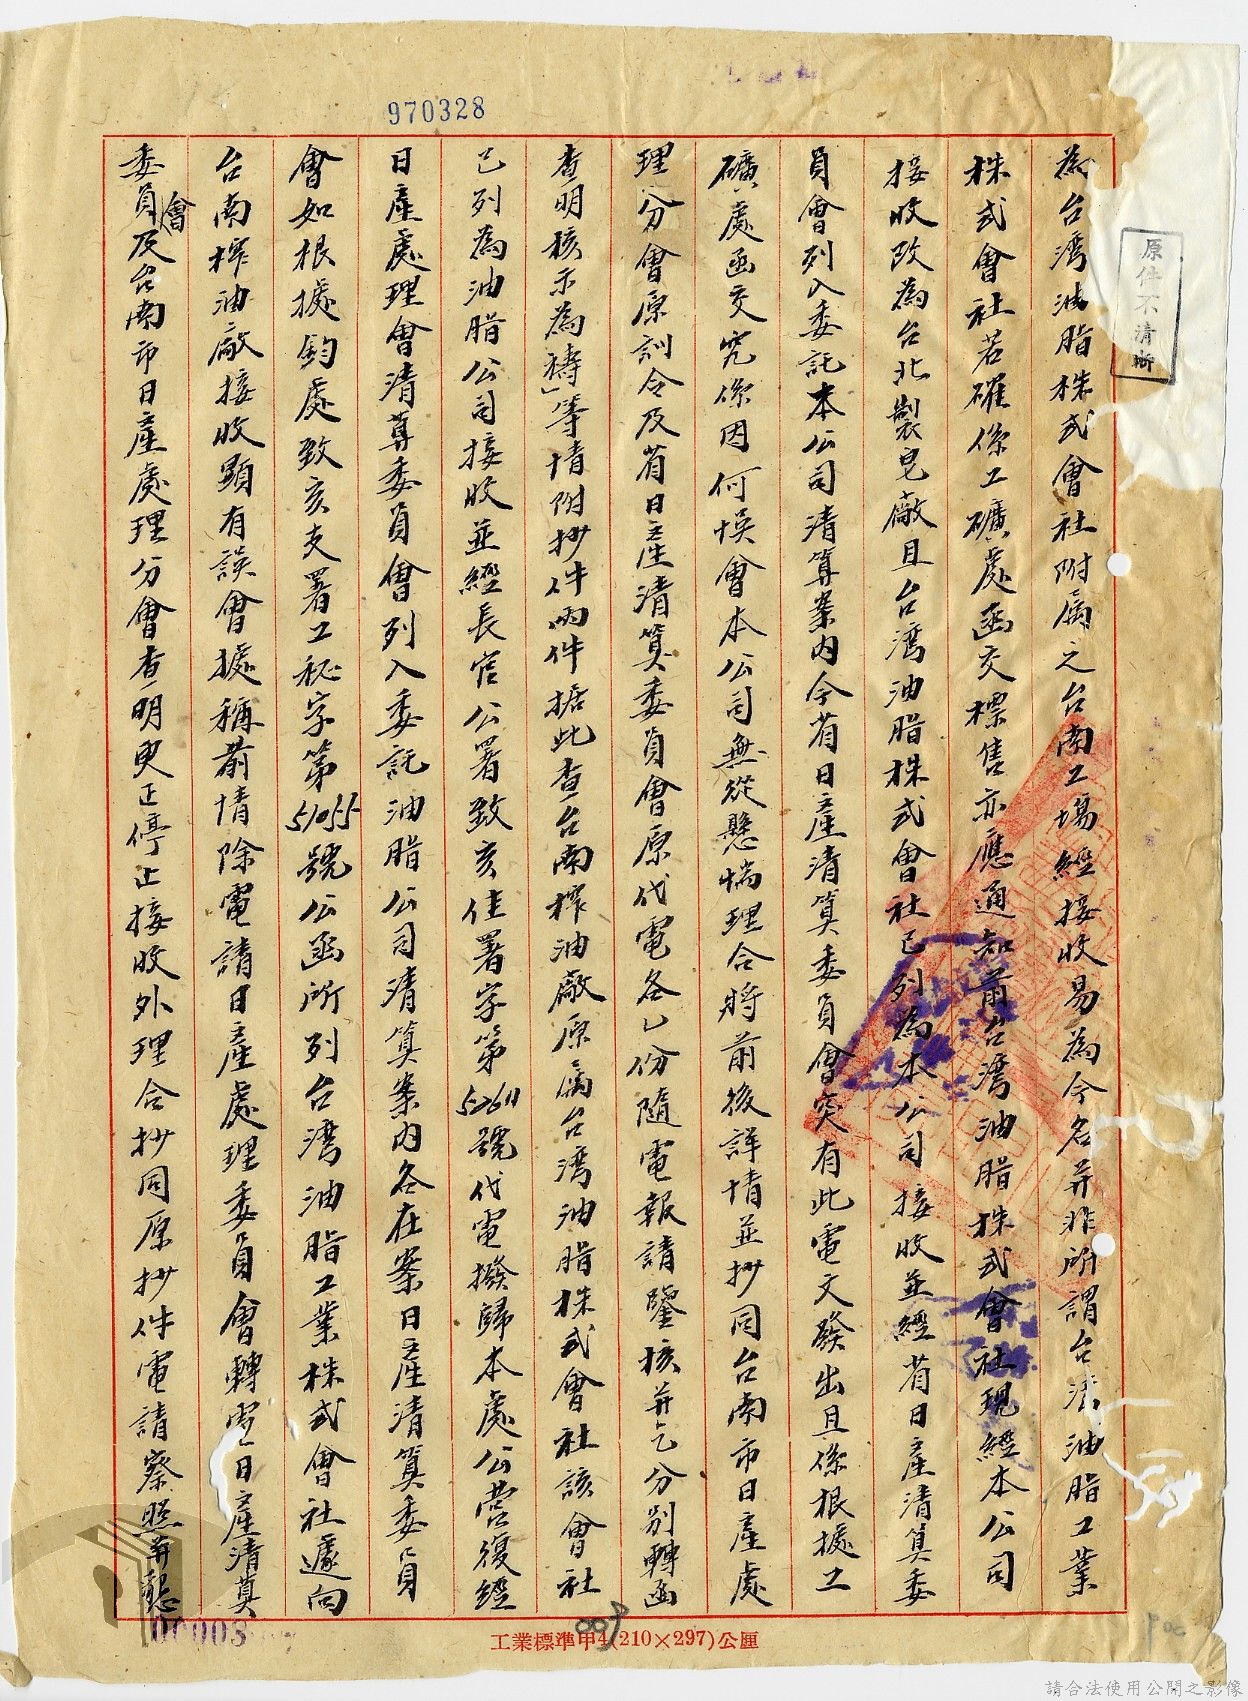 970328
原件不清晰
為台湾油脂株式會社附屬之台南工場經接收易為今名并非所謂台湾油脂工業
株式會社若確係工礦處函交標售亦應通知前台湾油脂株式會社現經本公司
接收改為台北製皂廠且台湾油脂株式會社已列為本公司接收並經省日產清算委
員會列入委託本公司清算案內今省日產清算委員會突有此電文發出且係根據工
礦處函交究係因何悞會本公司無從懸惴理合將前後詳情並抄同台南市日產處
理分會原訓令及省日產清算委員會原代電各乙份隨電報請鑒核并乞分別轉函
查明核示為禱」等情附抄件兩件據此查台南榨油廠原屬台湾油脂株式會社該會社
已列為油脂公司接收並經長官公署致亥佳署字第52611號代電撥歸本處公營復經
日產處理會清算委員會列入委託油脂公司清算案內各在案日產清算委員
會如根據鈞處致亥支署工秘字第51055號公函所列台湾油脂工業株式會社遽向
台南榨油廠接收顯有誤會據稱前情除電請日產處理委員會轉電日產清算
委員會及台南市日產處理分會查明更正停止接收外理合抄同原抄件電請察照并懇
00003
工業標準甲4(210×297)公厘
請合法使用公開之影像